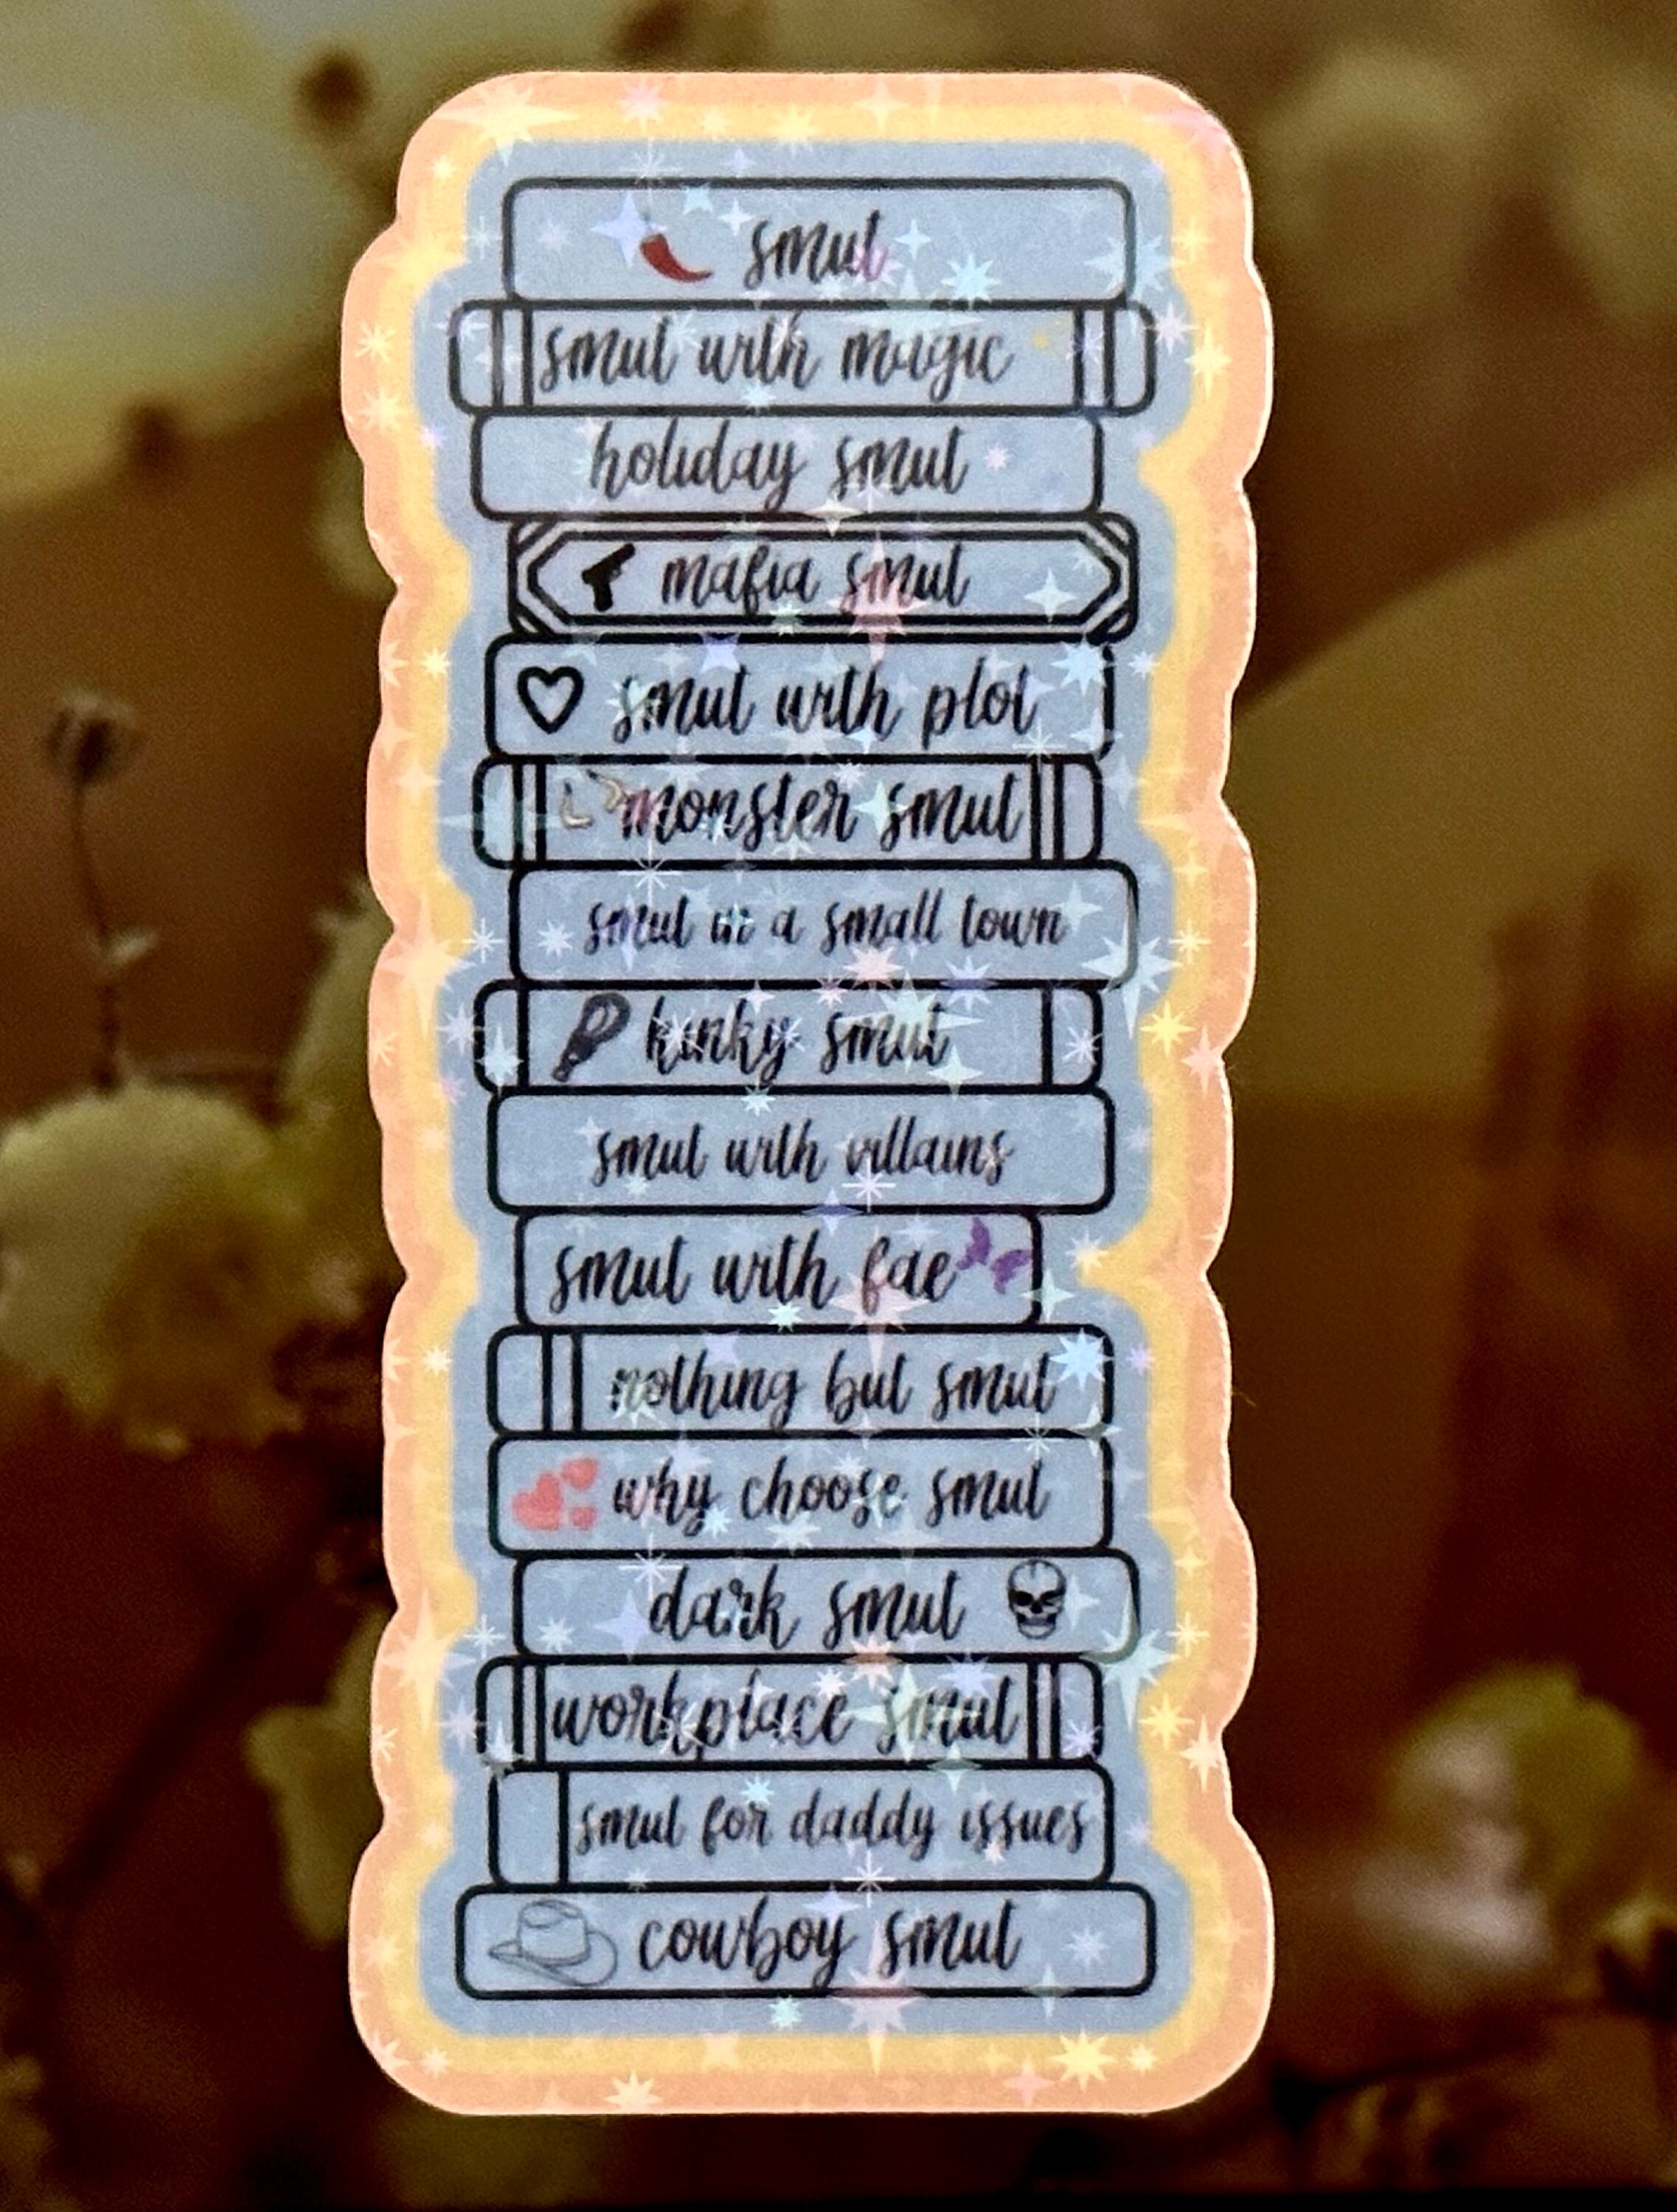 smut
smut with magic
holiday smut
mafia smut
smut with plot
monster smut
smut in a small town
kinky smut
smut with villains
smut with fae
nothing but smut
why choose smut
dark smut
workplace smut
smut for daddy issues
cowboy smut